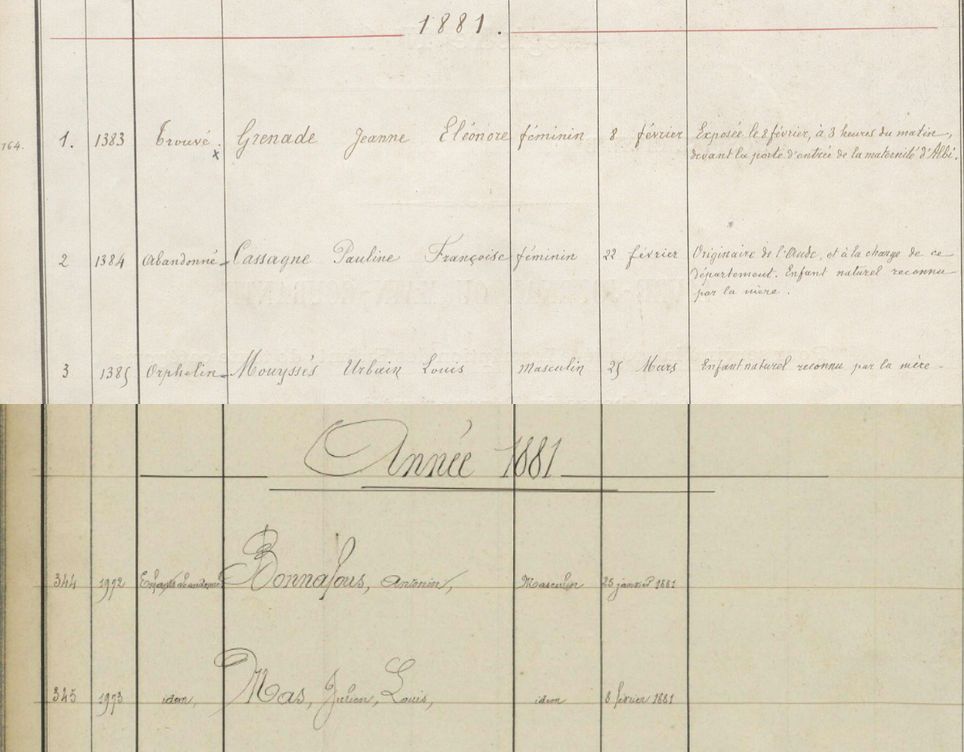 1881.
164. 1. 1383 Trouvé. Grenade Jeanne Eléonore féminin 8 février Exposée le 8 février, à 3 heures du matin,
x devant la porte d'entrée de la maternité d'Albi.
2 1384 Abandonné Cassagne Pauline Françoise féminin 22 février Originaire de l'Aude, et à la charge de ce
département. Enfant naturel reconnu
par la mère.
3 1385 Orphelin Mouyssès Urbain Louis masculin 25 Mars Enfant naturel reconnu par la mère
Année 1881
344 1972 Enfant abandonné Bonnafous, Antonin, Masculin 25 janvier 1881
345 1973 idem, Mas, Julien, Louis, idem 8 février 1881